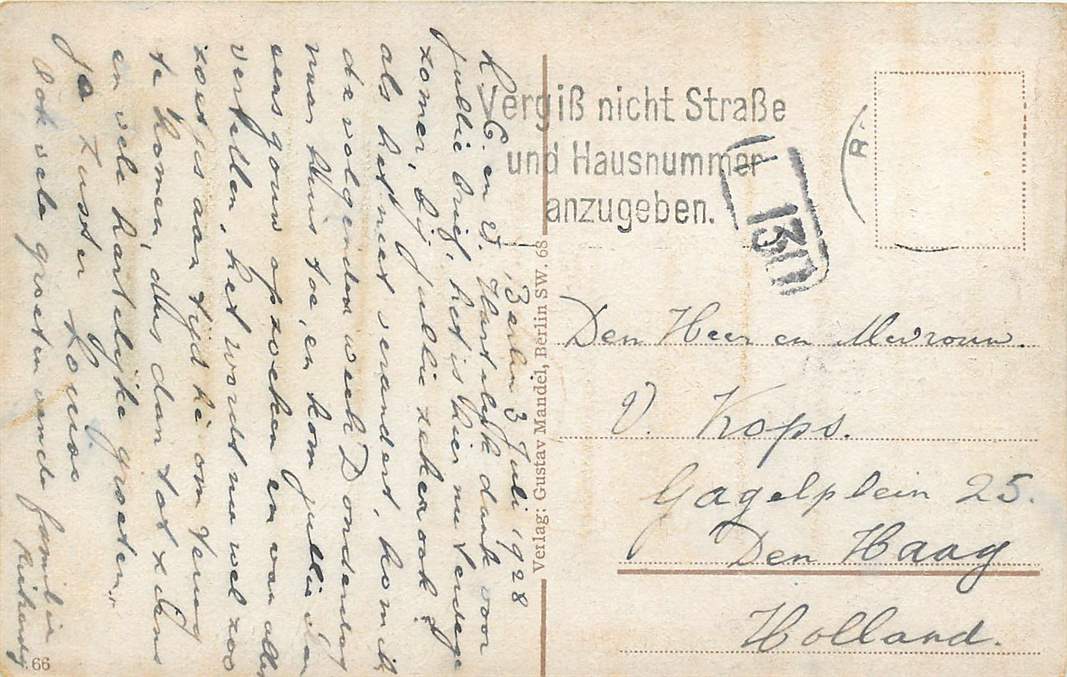 Berlin 3 Juli 1928
L. C. en V. Hartelijk dank voor
jullie brief, het is hier nu eendege
zomer, bij jullie zeker ook?
als het niet verandert, kom ik
de volgende week Donderdag
naar huis toe, en kom jullie dan
eens gouw opzoeken en van alles
vertellen, het wordt nu wel zoo
zoetjes aan tijd he om terug
te komen, dus dan tot ziens
en vele hartelijke groeten,
je Zuster
Ook vele groeten van de familie
Vergiß nicht Straße
und Hausnummer
anzugeben.
13
R.
Den Heer en Mevrouw.
V. Kops.
Gagelplein 25.
Den Haag
Holland.
Verlag: Gustav Mandel, Berlin SW. 68
66